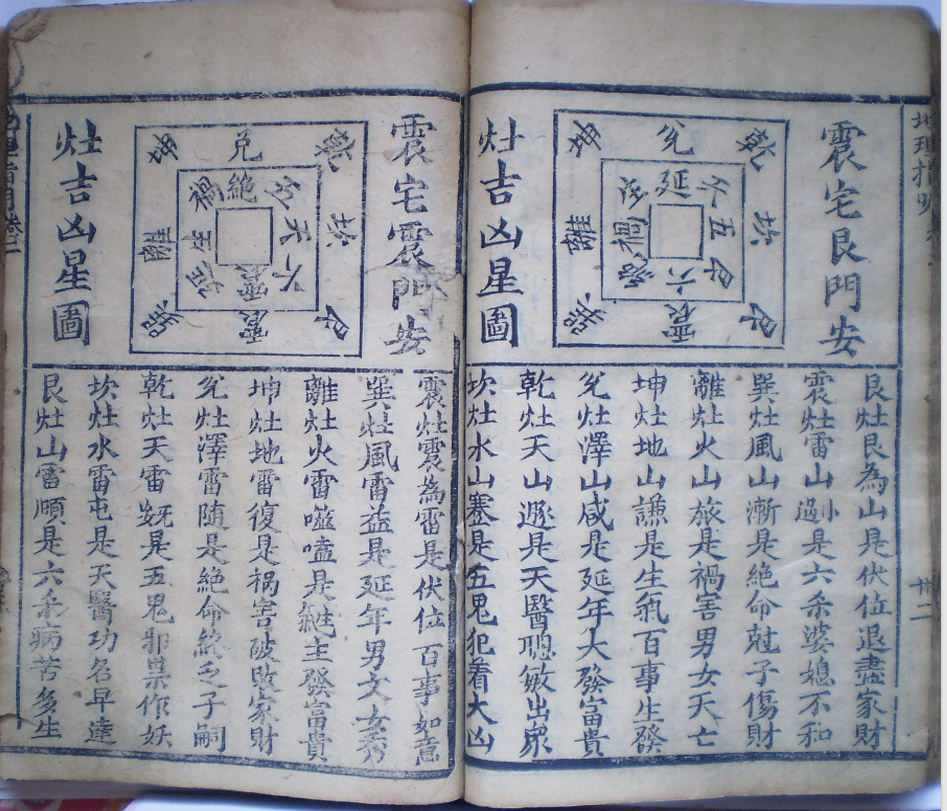 地理指
廿二
震宅艮門安
坤 兌 乾
離 坎
巽 震 艮
延 五 六 禍
灶吉凶星圖
艮灶艮為山是伏位退盡家財
震灶雷山小過是六杀婆媳不和
巽灶風山漸是絕命尅子傷財
離灶火山旅是禍害男女夭亡
坤灶地山謙是生氣百事生發
兌灶澤山咸是延年大發富貴
乾灶天山遯是天醫聰敏出衆
坎灶水山蹇是五鬼犯着大凶
震宅震門安
坤 兌 乾
離 坎
巽 震 艮
禍 絕 五 天 六 震 延 生
灶吉凶星圖
震灶震為雷是伏位百事如意
巽灶風雷益是延年男文女秀
離灶火雷噬嗑是生氣主發富貴
坤灶地雷復是禍害破敗家財
兌灶澤雷随是絕命終乏子嗣
乾灶天雷无妄是五鬼邪祟作妖
坎灶水雷屯是天醫功名早達
艮灶山雷頤是六杀病苦多生